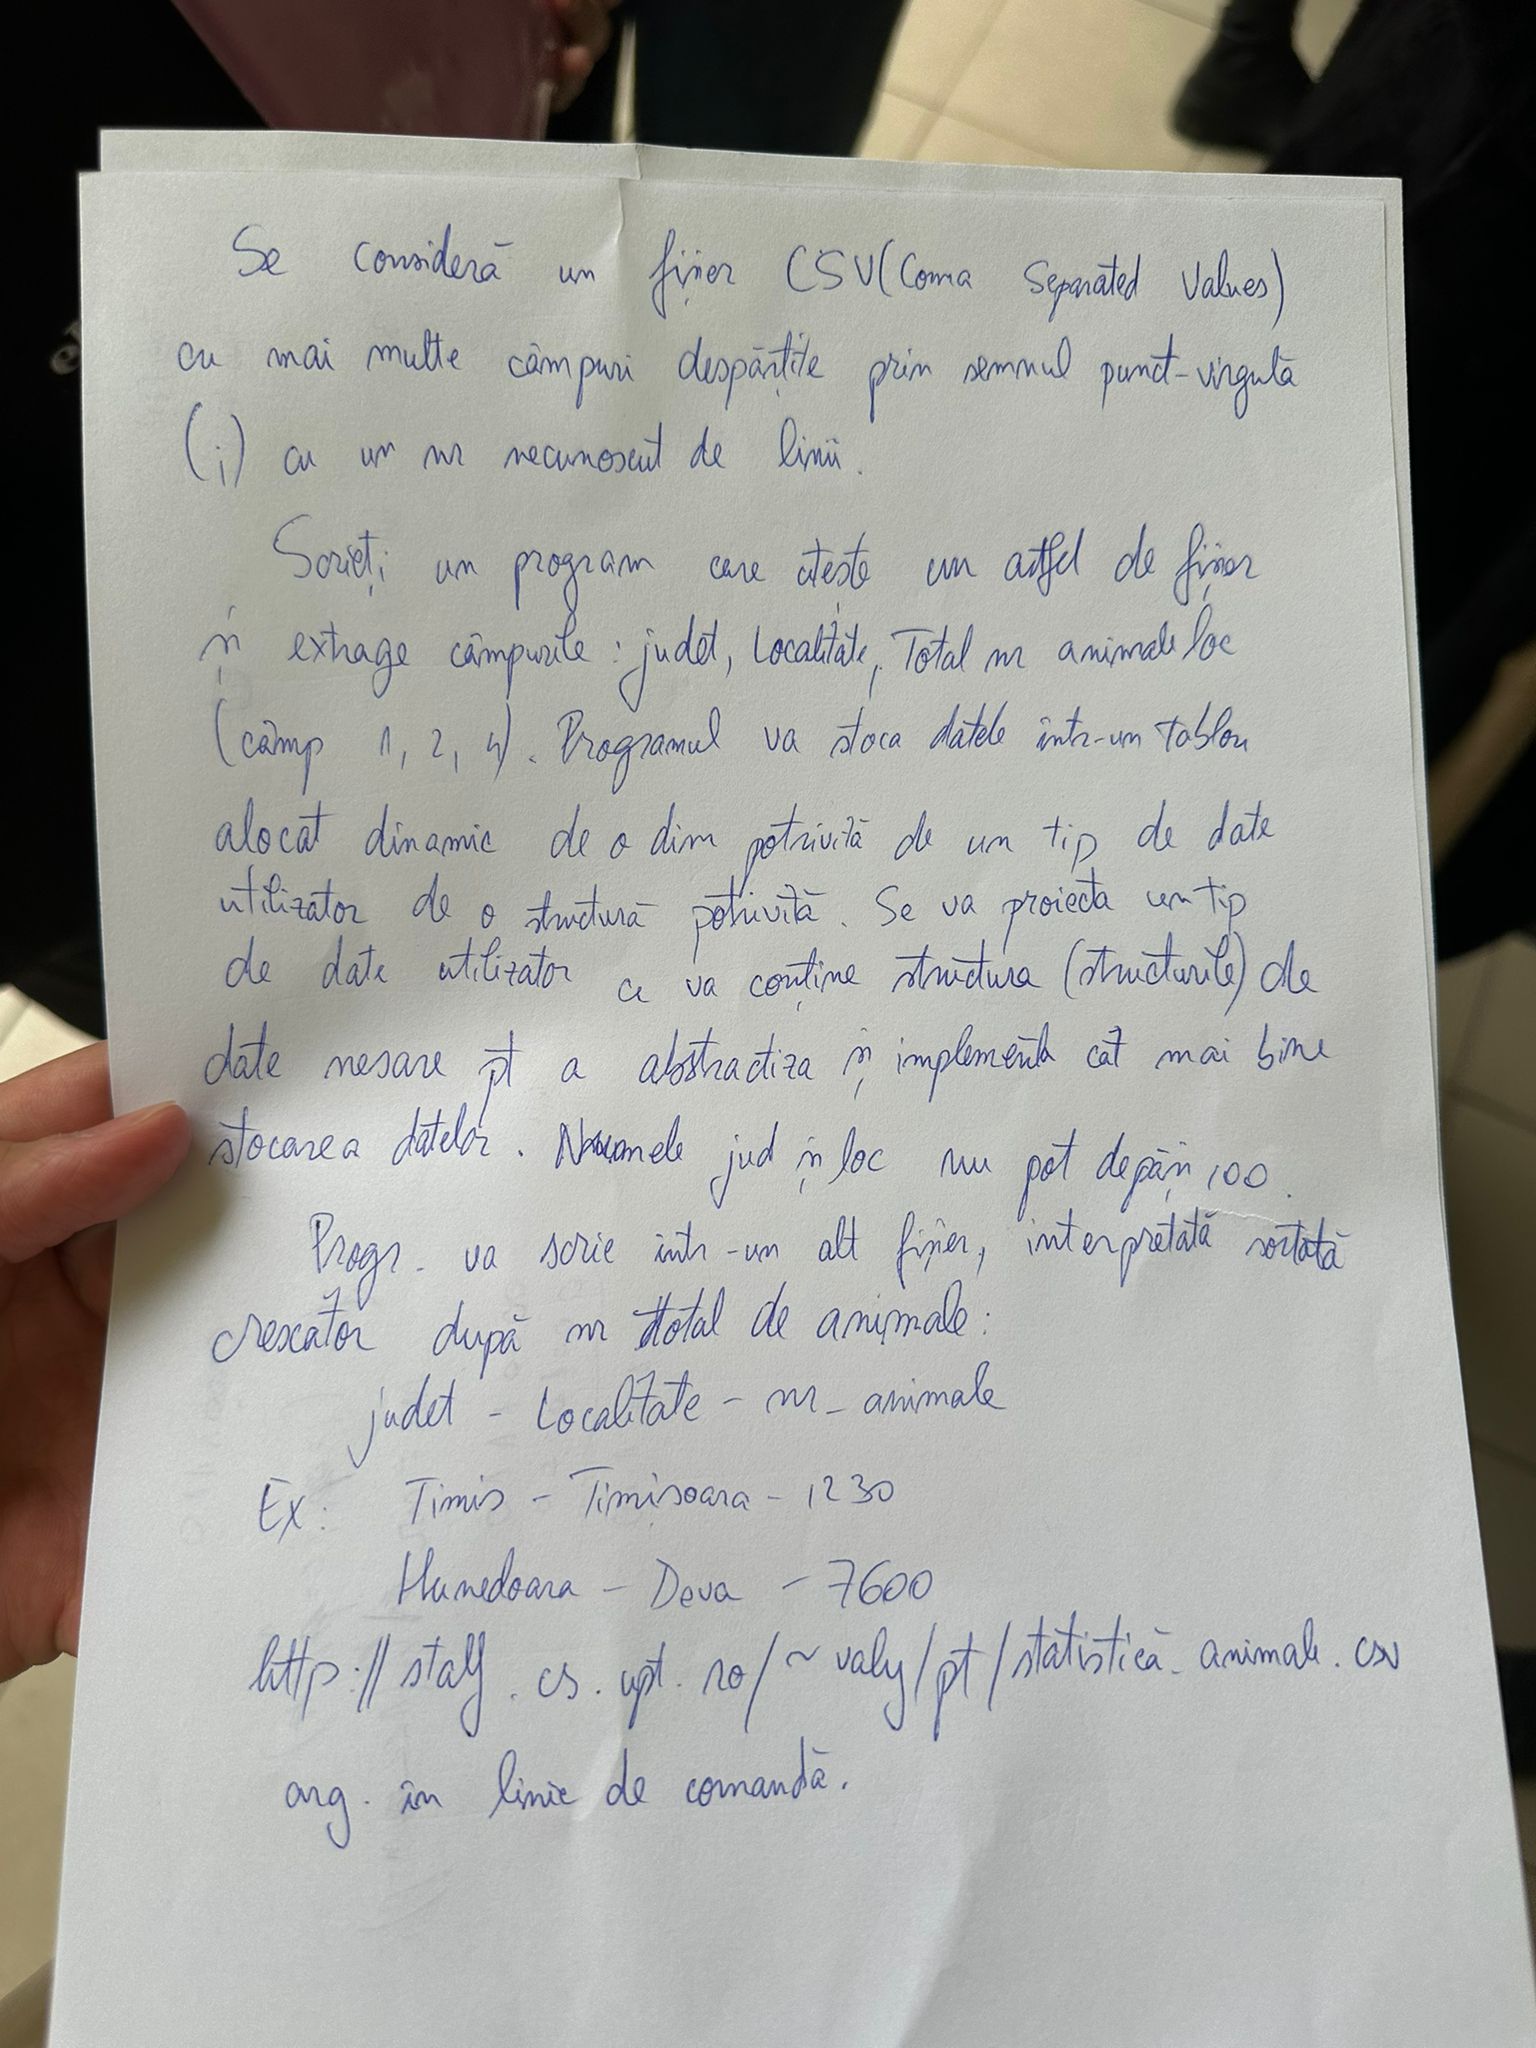 Se consideră un fișier CSV (Coma Separated Values)
cu mai multe câmpuri despărțite prin semnul punct-virgulă
(;) cu un nr necunoscut de linii.
Scrieți un program care citește un astfel de fișier
și extrage câmpurile: judet, Localitate, Total nr animale loc
(câmp 1, 2, 4). Programul va stoca datele într-un tablou
alocat dinamic de o dim potrivită de un tip de date
utilizator de o structură potrivită. Se va proiecta un tip
de date utilizator ce va conține structura (structurile) de
date nesare pt a abstractiza și implementa cât mai bine
stocarea datelor. Numele jud și loc nu pot depăși 100.
Progr. va scrie într-un alt fișier, interpretată sortată
crescător după nr total de animale:
judet - Localitate - nr_animale
Ex: Timis - Timisoara - 1230
Hunedoara - Deva - 7600
http://staff.cs.upt.ro/~valy/pt/statistică_animale.csv
arg. în linie de comandă.